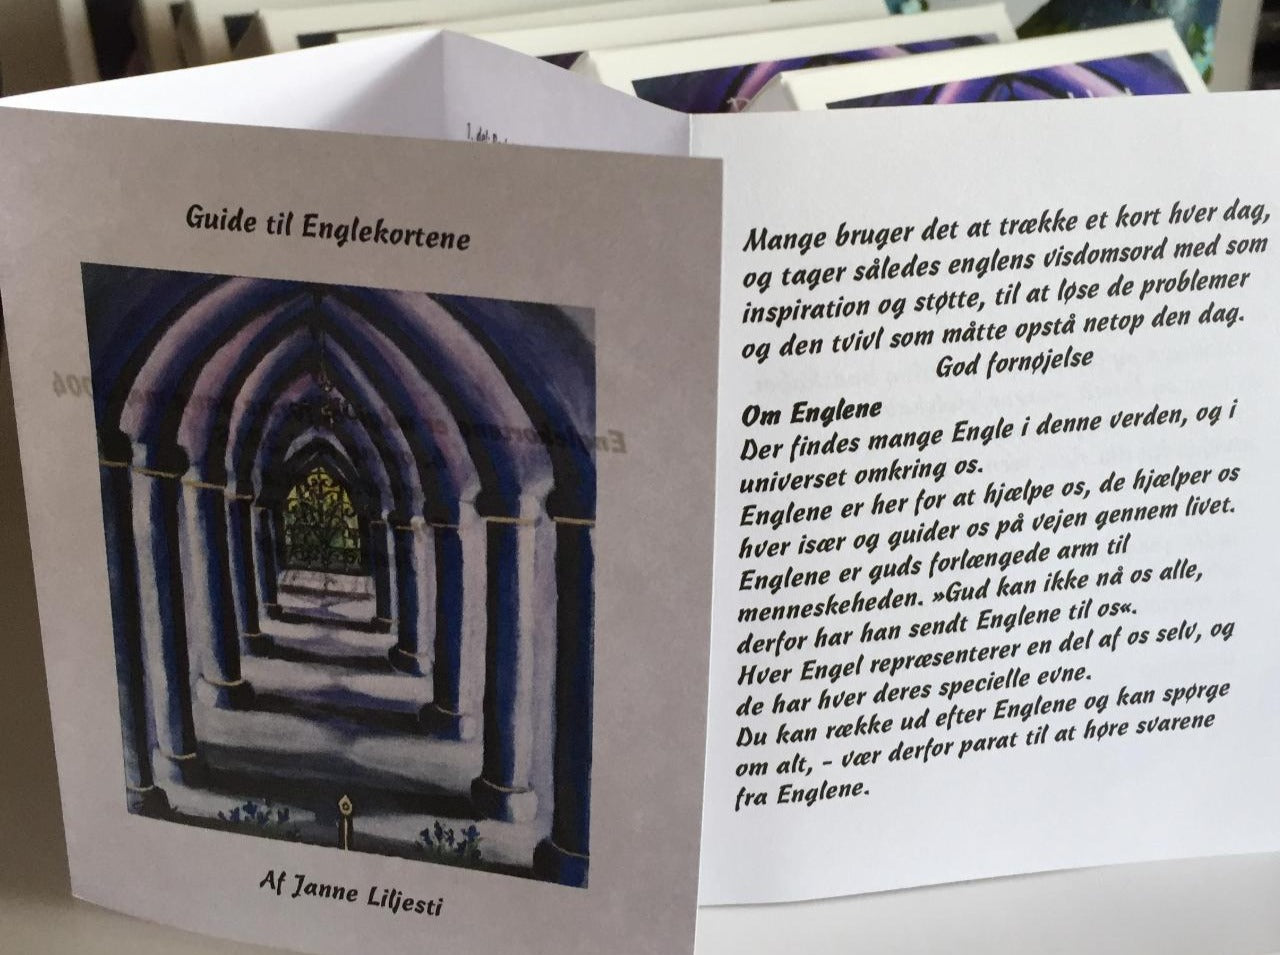 1. del:
Guide til Englekortene
Af Janne Liljesti
Mange bruger det at trække et kort hver dag,
og tager således englens visdomsord med som
inspiration og støtte, til at løse de problemer
og den tvivl som måtte opstå netop den dag.
God fornøjelse
Om Englene
Der findes mange Engle i denne verden, og i
universet omkring os.
Englene er her for at hjælpe os, de hjælper os
hver især og guider os på vejen gennem livet.
Englene er guds forlængede arm til
menneskeheden. »Gud kan ikke nå os alle,
derfor har han sendt Englene til os«.
Hver Engel repræsenterer en del af os selv, og
de har hver deres specielle evne.
Du kan række ud efter Englene og kan spørge
om alt, - vær derfor parat til at høre svarene
fra Englene.